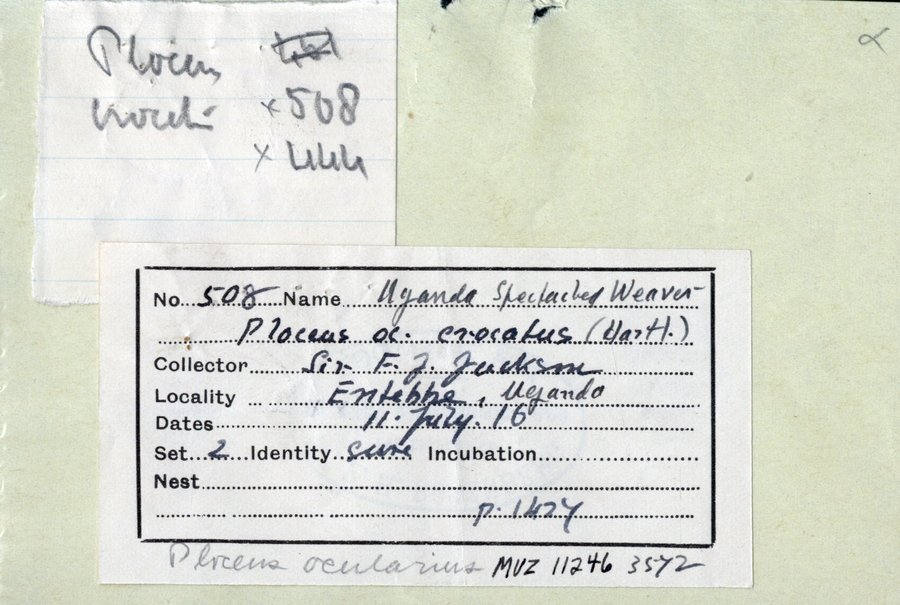 Ploceus
x 508
x 444
No. 508 Name Uganda Spectacled Weaver
Ploceus oc. crocatus (Hartl.)
Collector Sir F. J. Jackson
Locality Entebbe, Uganda
Dates 11. July. 16
Set 2 Identity sure Incubation
Nest
p. 1424
Ploceus ocularius MVZ 11246 3572